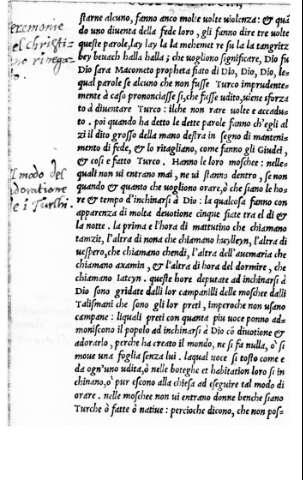 starne alcuno, fanno anco molte volte violenza: & quã
do uno diventa della fede loro, gli fanno dire tre volte
queste parole, lay lay la la mehemet re su la la tangritz
bey beuach halla halla; che vogliono significare, Dio fu
Dio sara Macometo propheta fiato di Dio, Dio, Dio, le-
qual parole se alcuno che non fusse Turco imprudente-
mente à caso prononciasse si, che fusse udito, viene sforza
to à diventare Turco: ilche non rare volte è accadu-
to. poi quando ha detto le dette parole fanno ch'egli al
zi il dito grosso della mano destra in segno di mantenimen-
to di fede, & lo ritagliano, come fanno gli Giudei,
& cosi è fatto Turco. Hanno le loro moschee: nelle-
quali non vi entrano mai, ne vi stanno dentro, se non
quando & quanto che vogliono orare, ò che siano le ho-
re & tempo d'inchinarsi à Dio: la qualcosa fanno con
apparenza di molta devotione cinque fiate tra el dì &
la notte. la prima è l'hora di mattutino che chiamano
tamzit, l'altra di nona che chiamano huylleyn, l'altra di
uespero, che chiamano chendi, l'altra dell'auemaria che
chiamano axamin, & l'altra di hora del dormire, che
chiamano iatcyn. queste hore deputate ad inchinarsi à
Dio sono gridate dalli lor campanilli delle moschee dalli
Talismani che sono gli lor preti, imperoche non usano
campane: liquali preti con quanta piu uoce ponno ad-
moniscono il popolo ad inchinarsi à Dio cõ divotione &
adorarlo, perche ha creato il mondo, ne si fa nulla, o' si
moue una foglia senza lui. laqual uoce si tosto come e
da ogn'uno udita, ò nelle boteghe et habitation loro si in
chinano, o' pur escono alla chiesa ad eseguire tal modo di
orare. nelle moschee non ui entrano donne benche siano
Turche ò fatte ò natiue: percioche dicono, che non pos-
ceremonie
el christi
no rinegar
l modo del
doratione
e i Turchi.